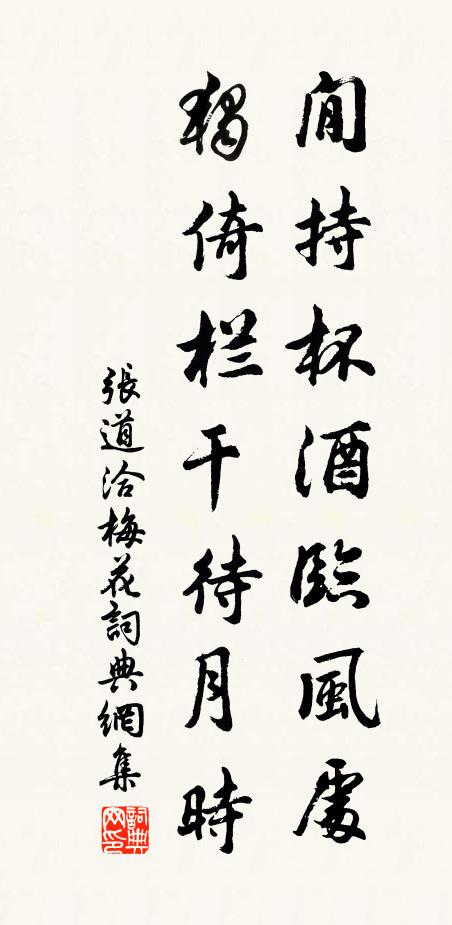 閒持杯酒臨風處
獨倚栏干待月時
張道洽梅花詞典網集
詞典网印